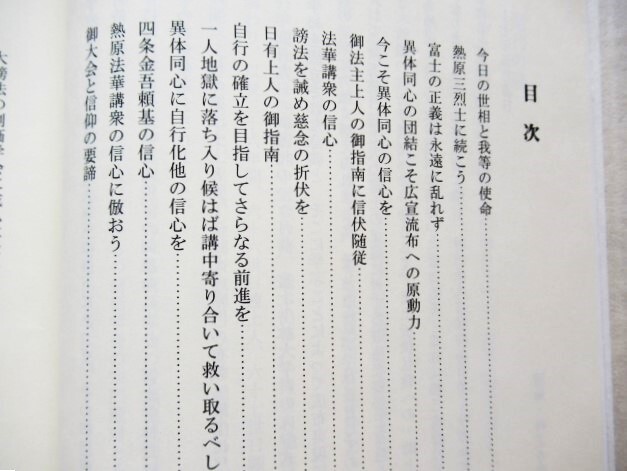 目次
今日の世相と我等の使命
熱原三烈士に続こう
富士の正義は永遠に乱れず
異体同心の団結こそ広宣流布への原動力
今こそ異体同心の信心を
御法主上人の御指南に信伏随従
法華講衆の信心
謗法を誡め慈念の折伏を
日有上人の御指南
自行の確立を目指してさらなる前進を
一人地獄に落ち入り候はば講中寄り合いて救い取るべし
異体同心に自行化他の信心を
四条金吾頼基の信心
熱原法華講衆の信心に倣おう
御大会と信仰の要諦